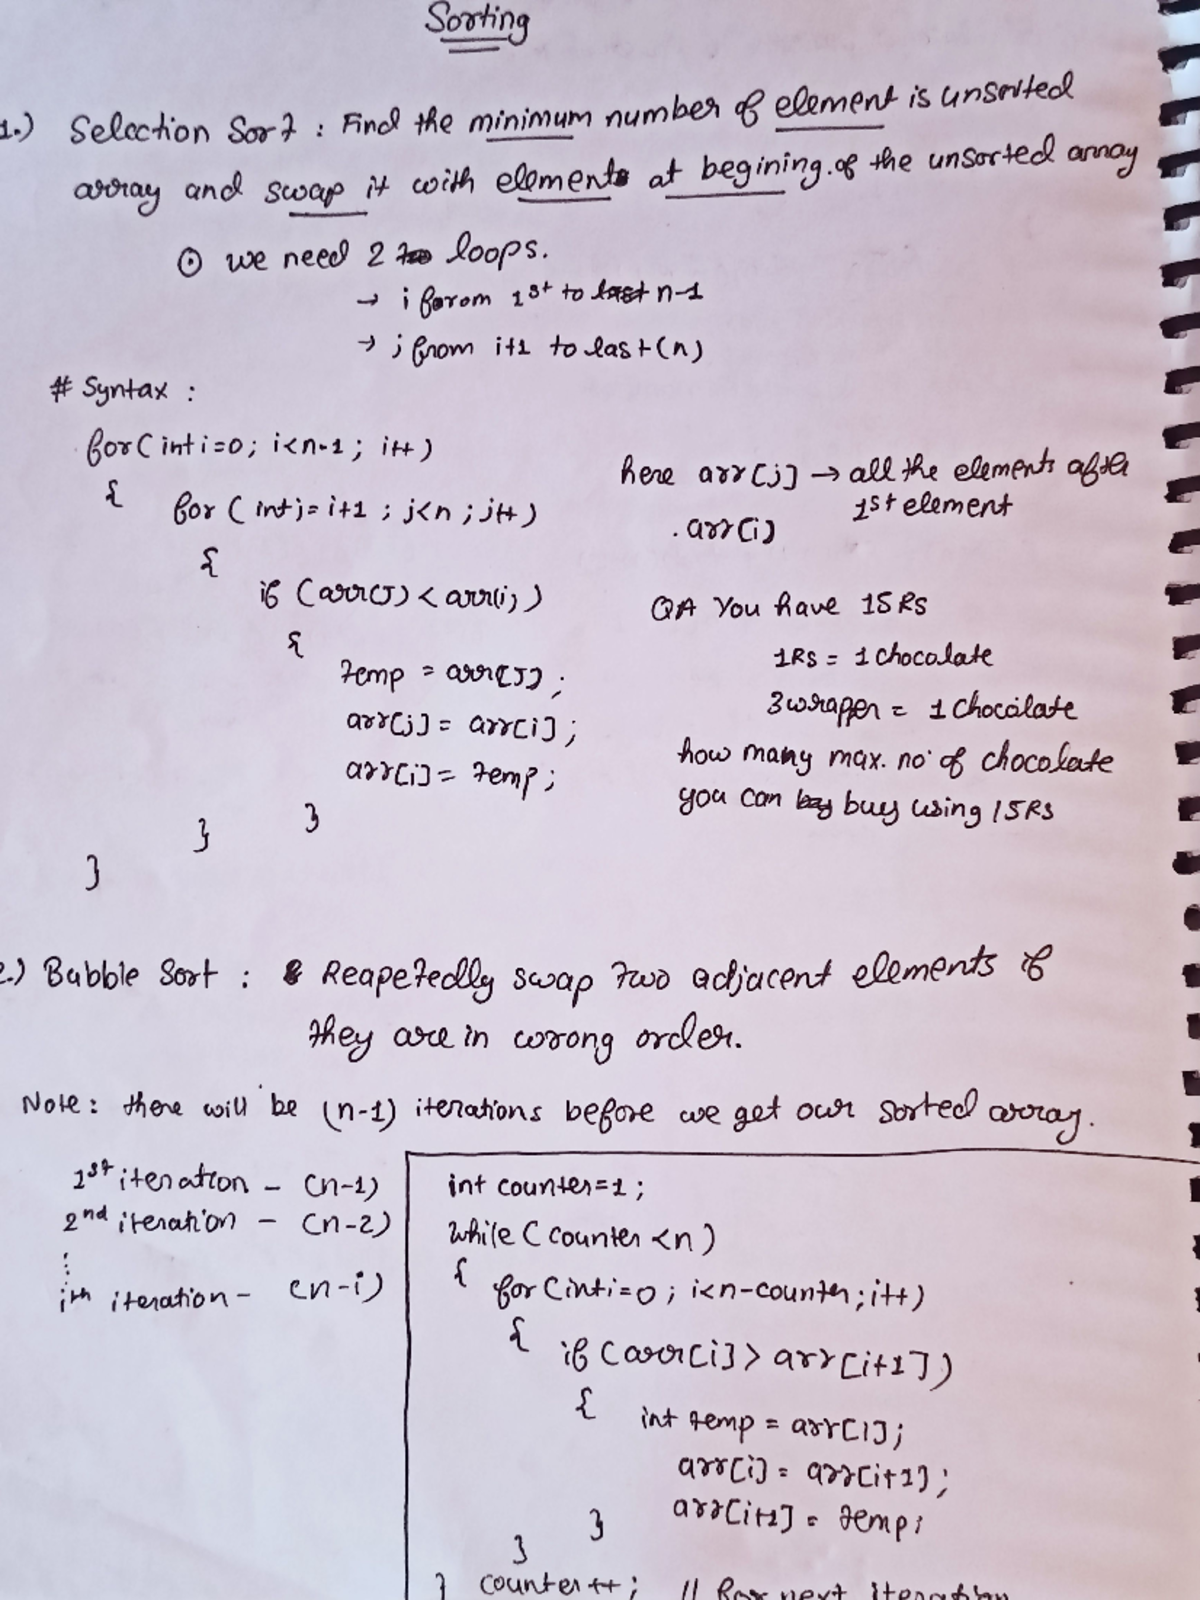 Sorting
1.) Selection Sort : Find the minimum number of element is unsorted
array and swap it with elements at begining. of the unsorted array
⊙ we need 2 loops.
→ i from 1st to last n-1
→ j from i+1 to last (n)
# Syntax :
for (int i=0; i<n-1; i++)
{ for (int j= i+1 ; j<n ; j++)
{
if (arr[j] < arr[i])
{
temp = arr[j];
arr[j] = arr[i];
arr[i] = temp;
}
}
}
here arr[j] → all the elements after
1st element
. arr[i]
QA You have 15 RS
1RS = 1 chocolate
3 wrapper = 1 chocolate
how many max. no. of chocolate
you can buy using 15RS
2.) Bubble Sort : Reapetedly swap two adjacent elements if
they are in wrong order.
Note: there will be (n-1) iterations before we get our sorted array.
1st iteration - (n-1)
2nd iteration - (n-2)
⋮
ith iteration - (n-i)
int counter=1;
while (counter <n)
{ for (int i=0; i<n-counter; i++)
{ if (arr[i] > arr[i+1])
{ int temp = arr[i];
arr[i] = arr[i+1];
arr[i+1] = temp;
}
}
} counter++; // for next iteration